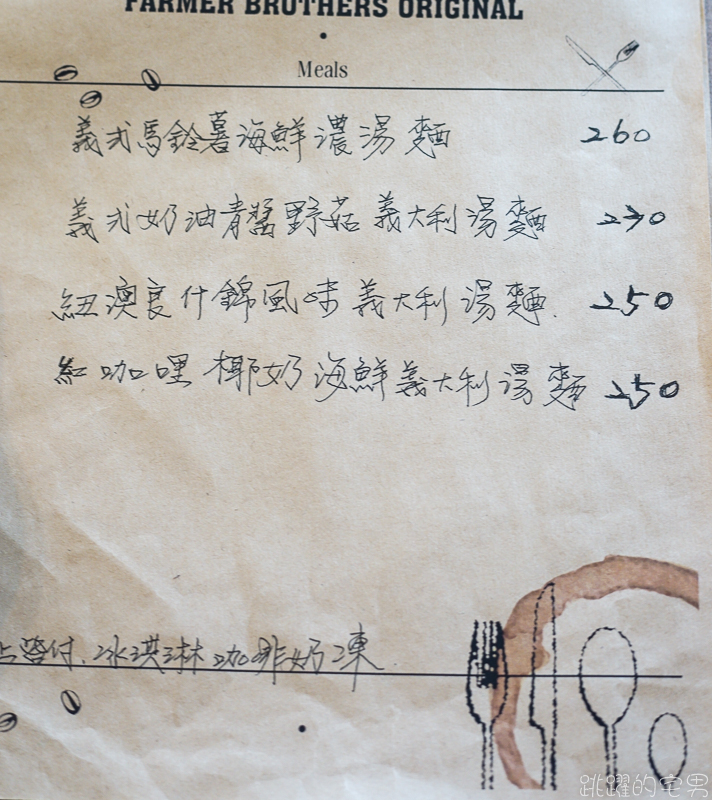 FARMER BROTHERS ORIGINAL
Meals
義式馬鈴薯海鮮濃湯麵 260
義式奶油青醬野菇義大利湯麵 230
紐澳良什錦風味義大利湯麵. 250
紅咖哩椰奶海鮮義大利湯麵 250
上皆付.冰淇淋咖啡奶凍.
跳躍的宅男